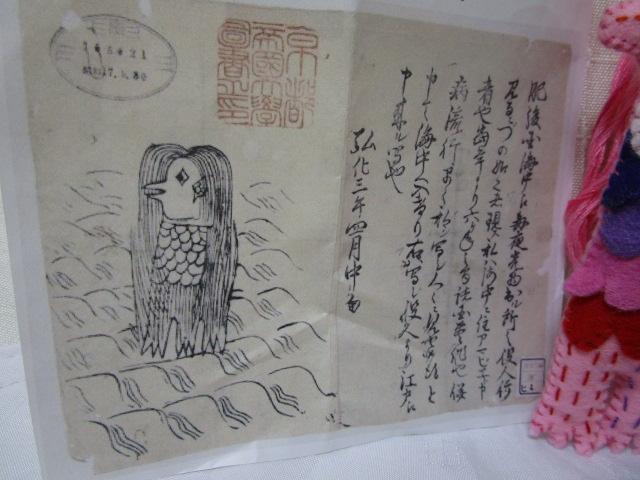 京都
帝國大學
圖書之印
肥後国海中え毎夜光物出ル所之役人行
見るニづの如く者現ス私ハ海中ニ住アマビヱト申
者也当年より六ヶ年之間諸国豊作也併
病流行早々私ヲ写シ人々ニ見せ候得と
申て海中へ入けり右ハ写シ役人より江戸え
申来ル写也
弘化三年四月中旬